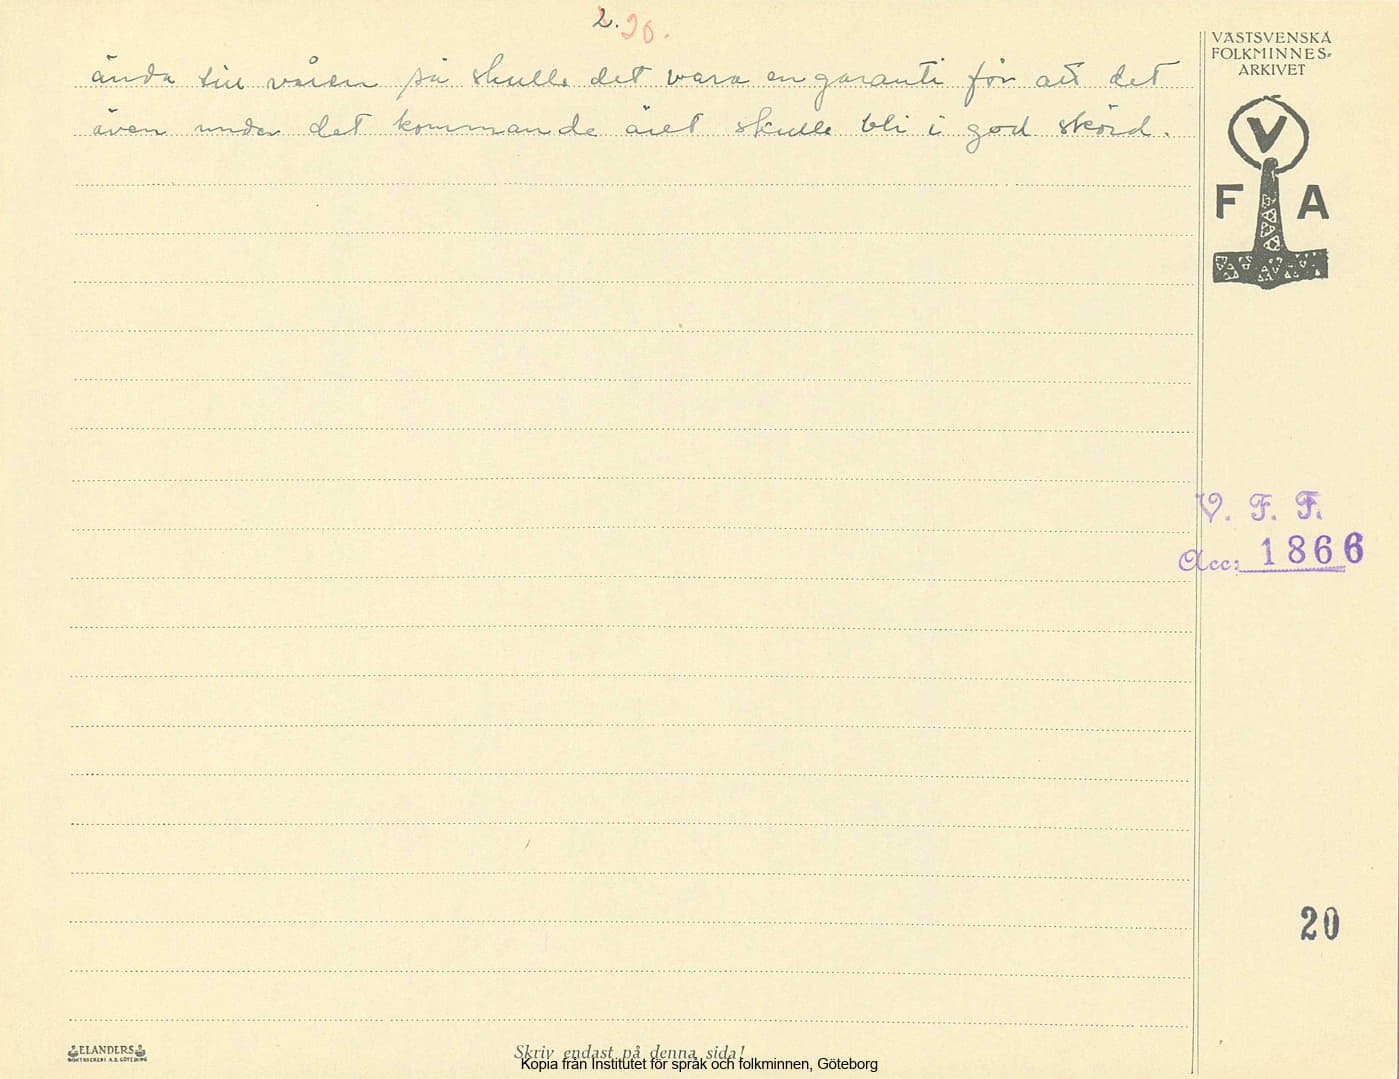 2. 20.
VÄSTSVENSKA
FOLKMINNES-
ARKIVET
ända till våren så skulle det vara en garanti för att det
även under det kommande året skulle bli i god skörd.
V
F A
V. F. F.
Acc: 1866
20
ELANDERS
BOKTRYCKERI A.B. GÖTEBORG
Skriv endast på denna sida!
Kopia från Institutet för språk och folkminnen, Göteborg